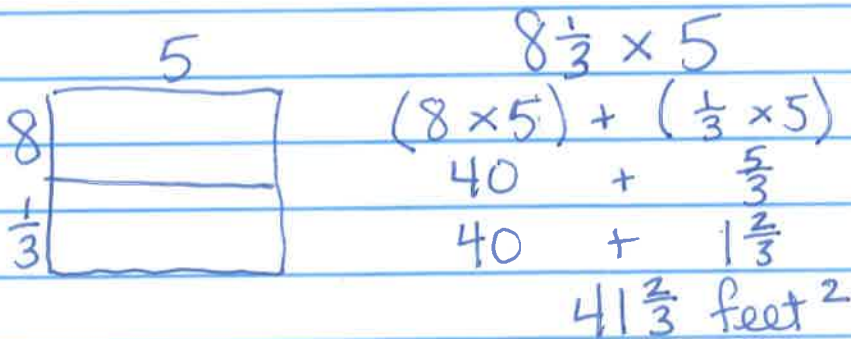 5
8
1/3
8 1/3 × 5
(8 × 5) + (1/3 × 5)
40 + 5/3
40 + 1 2/3
41 2/3 feet²